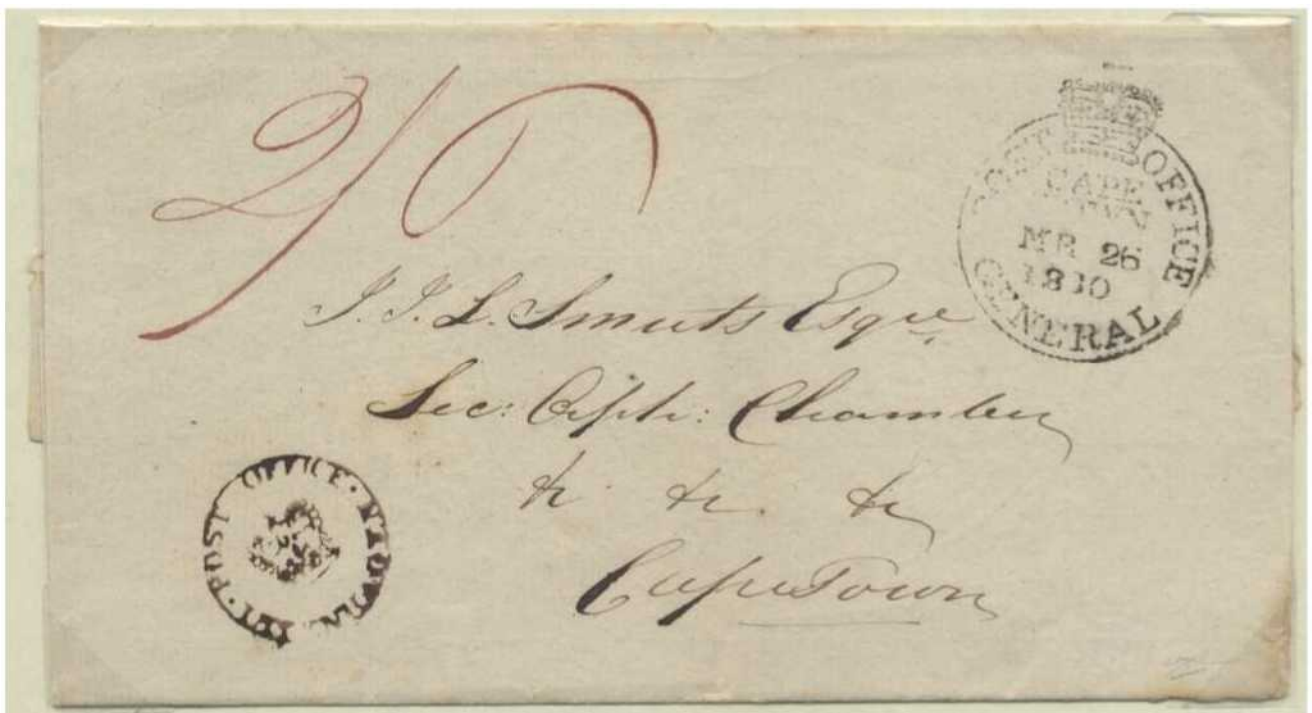 2/
POST OFFICE
CAPE TOWN
MR 26
1830
GENERAL
J. J. L. Smuts Esqre
Sec: Orph: Chamber
&c &c. &c
CapeTown
POST OFFICE